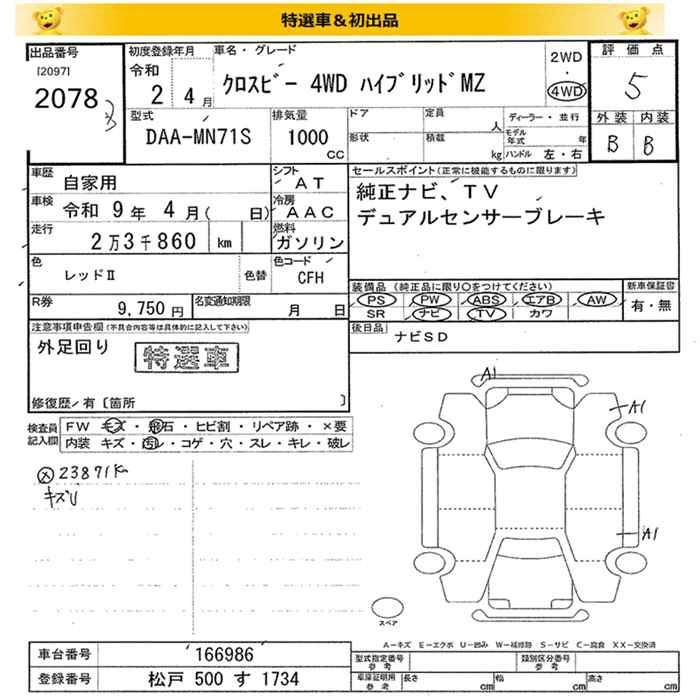 特選車＆初出品
出品番号
[2097]
2078
初度登録年月
令和
2 4月
車名・グレード
クロスビー 4WD ハイブリッドMZ
2WD
・
4WD
評価点
5
外装 内装
B B
型式
DAA-MN71S
排気量
1000
CC
ドア
形状
定員
人
積載
kg
ディーラー・並行
モデル年式 年
ハンドル 左・右
車歴
自家用
シフト
AT
車検
令和 9年 4月( 日)
冷房
AAC
走行
2万3千860 km
燃料
ガソリン
色
レッドⅡ
色替
色コード
CFH
R券
9,750円
名変通知期限
月 日
セールスポイント(正常に機能するものに限ります)
純正ナビ、TV
デュアルセンサーブレーキ
装備品 (純正品に限り○をつけてください)
PS PW ABS エアB AW
SR ナビ TV カワ
新車保証書
有・無
後日品
ナビSD
注意事項申告欄(不具合内容等は具体的に記入して下さい)
外足回り
特選車
修復歴／有〔箇所 〕
検査員記入欄
FW キズ・飛石・ヒビ割・リペア跡・×要
内装 キズ・汚レ・コゲ・穴・スレ・キレ・破レ
ⓧ23871K
キズU
A1
A1
A1
スペア
A－キズ E－エクボ U－凹み W－補修跡 S－サビ C－腐食 XX－交換済
車台番号
166986
登録番号
松戸 500 す 1734
型式指定番号
参考
類別区分番号
参考
車庫証明用
参考
長さ cm
幅 cm
高さ cm